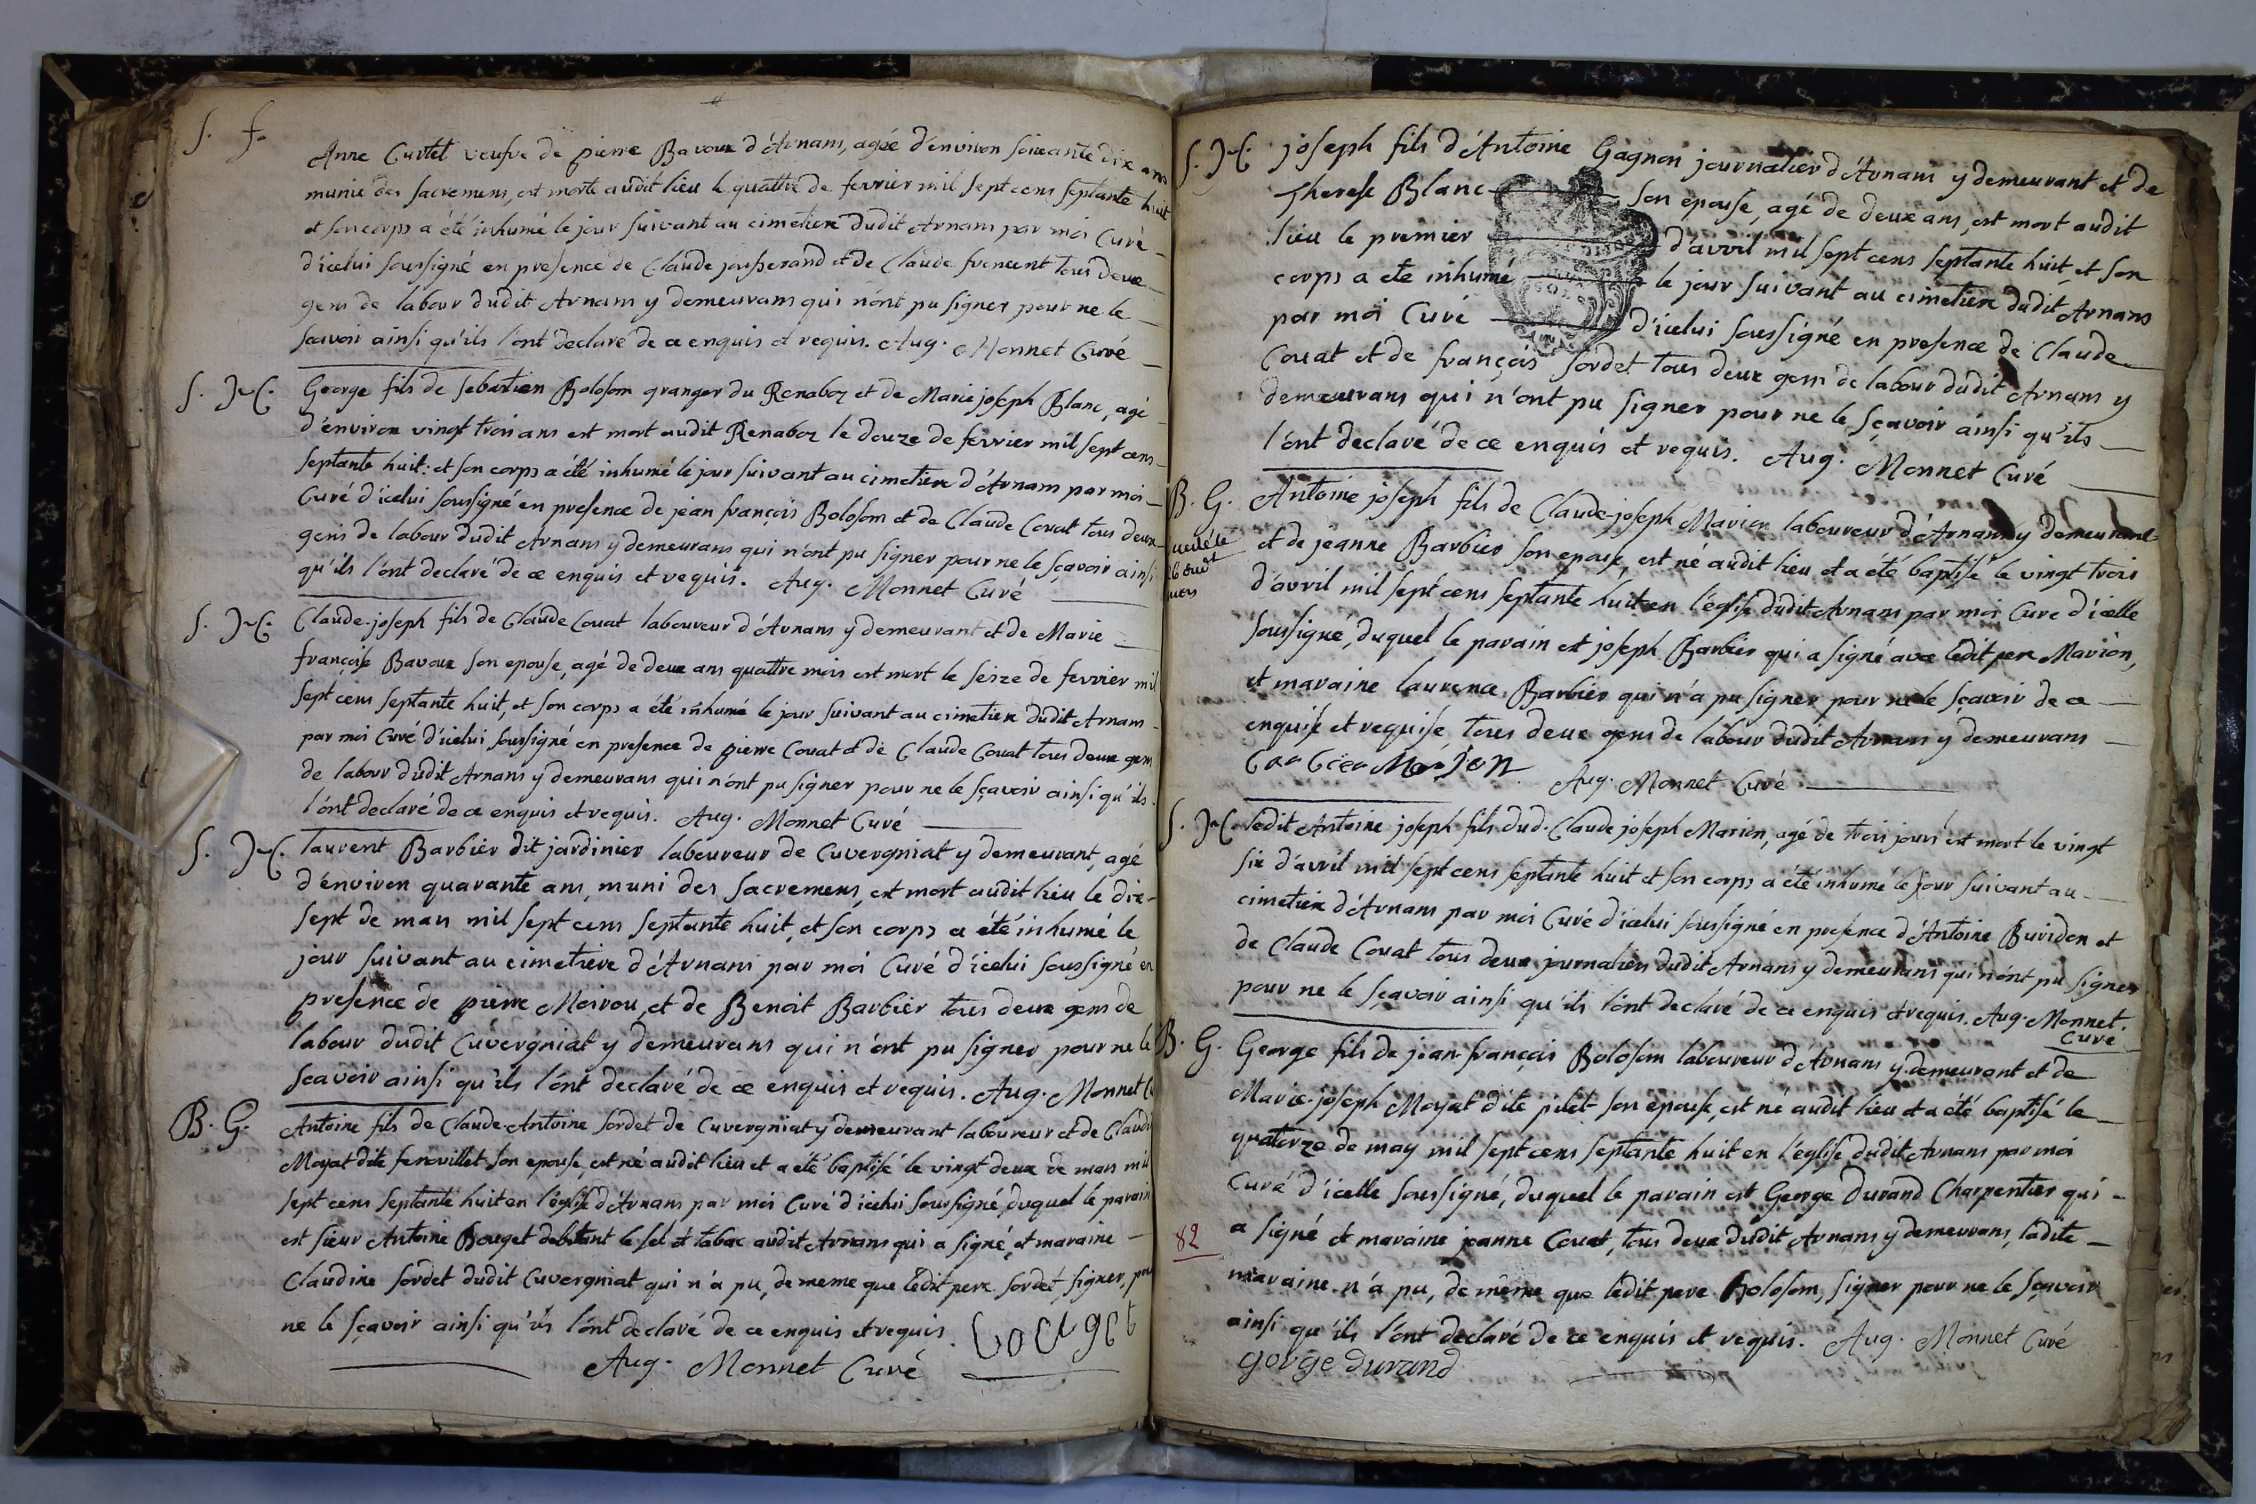 S. f.
Anne Curtet veufve de pierre Bavoux d'Arnans, agée d'environ soixante dix ans
munie des sacremens, est morte audit lieu le quattre de fevrier mil sept cens septante huit
et son corps a été inhumé le jour suivant au cimetiere dudit Arnans par moi Curé
d'icelui soussigné en presence de Claude josserand et de Claude froment tous deux
gens de labour dudit Arnans y demeurans qui n'ont pu signer pour ne le
sçavoir ainsi qu'ils l'ont declaré de ce enquis et requis. Aug. Monnet Curé
S. M. George fils de sebastien Bolosom granger du Renaboz et de Marie joseph Blanc, agé
d'environ vingt trois ans est mort audit Renaboz le douze de fevrier mil sept cens
septante huit: et son corps a été inhumé le jour suivant au cimetiere d'Arnans par moi
Curé d'icelui soussigné en presence de jean françois Bolosom et de Claude Couat tous deux
gens de labour dudit Arnans y demeurans qui n'ont pu signer pour ne le sçavoir ainsi
qu'ils l'ont declaré de ce enquis et requis. Aug. Monnet Curé
S. M. Claude-joseph fils de Claude Couat laboureur d'Arnans y demeurant et de Marie
françoise Bavoux son epouse, agé de deux ans quattre mois est mort le seize de fevrier mil
sept cens septante huit, et son corps a été inhumé le jour suivant au cimetiere dudit Arnans
par moi Curé d'icelui soussigné en presence de pierre Couat et de Claude Couat tous deux gens
de labour dudit Arnans y demeurans qui n'ont pu signer pour ne le sçavoir ainsi qu'ils
l'ont declaré de ce enquis et requis. Aug. Monnet Curé
S. M. laurent Barbier dit jardinier laboureur de Cuvergniat y demeurant, agé
d'environ quarante ans, muni des sacremens, est mort audit lieu le dix-
sept de mars mil sept cens septante huit, et son corps a été inhumé le
jour suivant au cimetiere d'Arnans par moi Curé d'icelui soussigné en
presence de pierre Moirou, et de Benoit Barbier tous deux gens de
labour dudit Cuvergniat y demeurans qui n'ont pu signer pour ne le
sçavoir ainsi qu'ils l'ont declaré de ce enquis et requis. Aug. Monnet
B. G. Antoine fils de Claude-Antoine sordet de Cuvergniat y demeurant laboureur et de Claudi
Moyat dite fenouillet son epouse, est né audit lieu et a été baptisé le vingt deux de mars mil
sept cens septante huit en l'église d'Arnans par moi Curé d'icelui soussigné, duquel le parain
est sieur Antoine Bouget debitant le sel et tabac audit Arnans qui a signé, et maraine
Claudine sordet dudit Cuvergniat qui n'a pu, de meme que ledit pere sordet, signer, pou
ne le sçavoir ainsi qu'ils l'ont declaré de ce enquis et requis. bouget
Aug. Monnet Curé
S. M. joseph fils d'Antoine Gagnon journalier d'Arnans y demeurant et de
Therese Blanc son epouse, agé de deux ans, est mort audit
lieu le premier d'avril mil sept cens septante huit, et son
corps a été inhumé le jour suivant au cimetiere dudit Arnans
par moi Curé d'icelui soussigné en presence de Claude
Couat et de françois sordet tous deux gens de labour dudit Arnans y
demeurans qui n'ont pu signer pour ne le sçavoir ainsi qu'ils
l'ont declaré de ce enquis et requis. Aug. Monnet Curé
B. G. Antoine joseph fils de Claude-joseph Marion laboureur d'Arnans y demeurant
et de jeanne Barbier son epouse, est né audit lieu et a été baptisé le vingt trois
d'avril mil sept cens septante huit en l'église dudit Arnans par moi Curé d'icelle
soussigné, duquel le parain est joseph Barbier qui a signé avec ledit pere Marion,
et maraine laurence Barbier qui n'a pu signer pour ne le sçavoir de ce
enquise et requise, tous deux gens de labour dudit Arnans y demeurans
barbier Marion
Aug. Monnet Curé
S. M. ledit Antoine joseph fils dud. Claude joseph Marion, agé de trois jours est mort le vingt
six d'avril mil sept cens septante huit et son corps a été inhumé le jour suivant au
cimetiere d'Arnans par moi Curé d'icelui soussigné en presence d'Antoine Buridon et
de Claude Couat tous deux journaliers dudit Arnans y demeurans qui n'ont pu signer
pour ne le sçavoir ainsi qu'ils l'ont declaré de ce enquis et requis. Aug. Monnet.
Curé
B. G. George fils de jean-françois Bolosom laboureur d'Arnans y demeurant et de
Marie-joseph Moyat dite pilet son epouse, est né audit lieu et a été baptisé le
quatorze de may mil sept cens septante huit en l'église dudit Arnans par moi
Curé d'icelle soussigné, duquel le parain est George Durand Charpentier qui
82 a signé et maraine jeanne Couat, tous deux dudit Arnans y demeurans, ladite
maraine n'a pu, de même que ledit pere Bolosom, signer pour ne le sçavoir
ainsi qu'ils l'ont declaré de ce enquis et requis. Aug. Monnet Curé
gorge durand